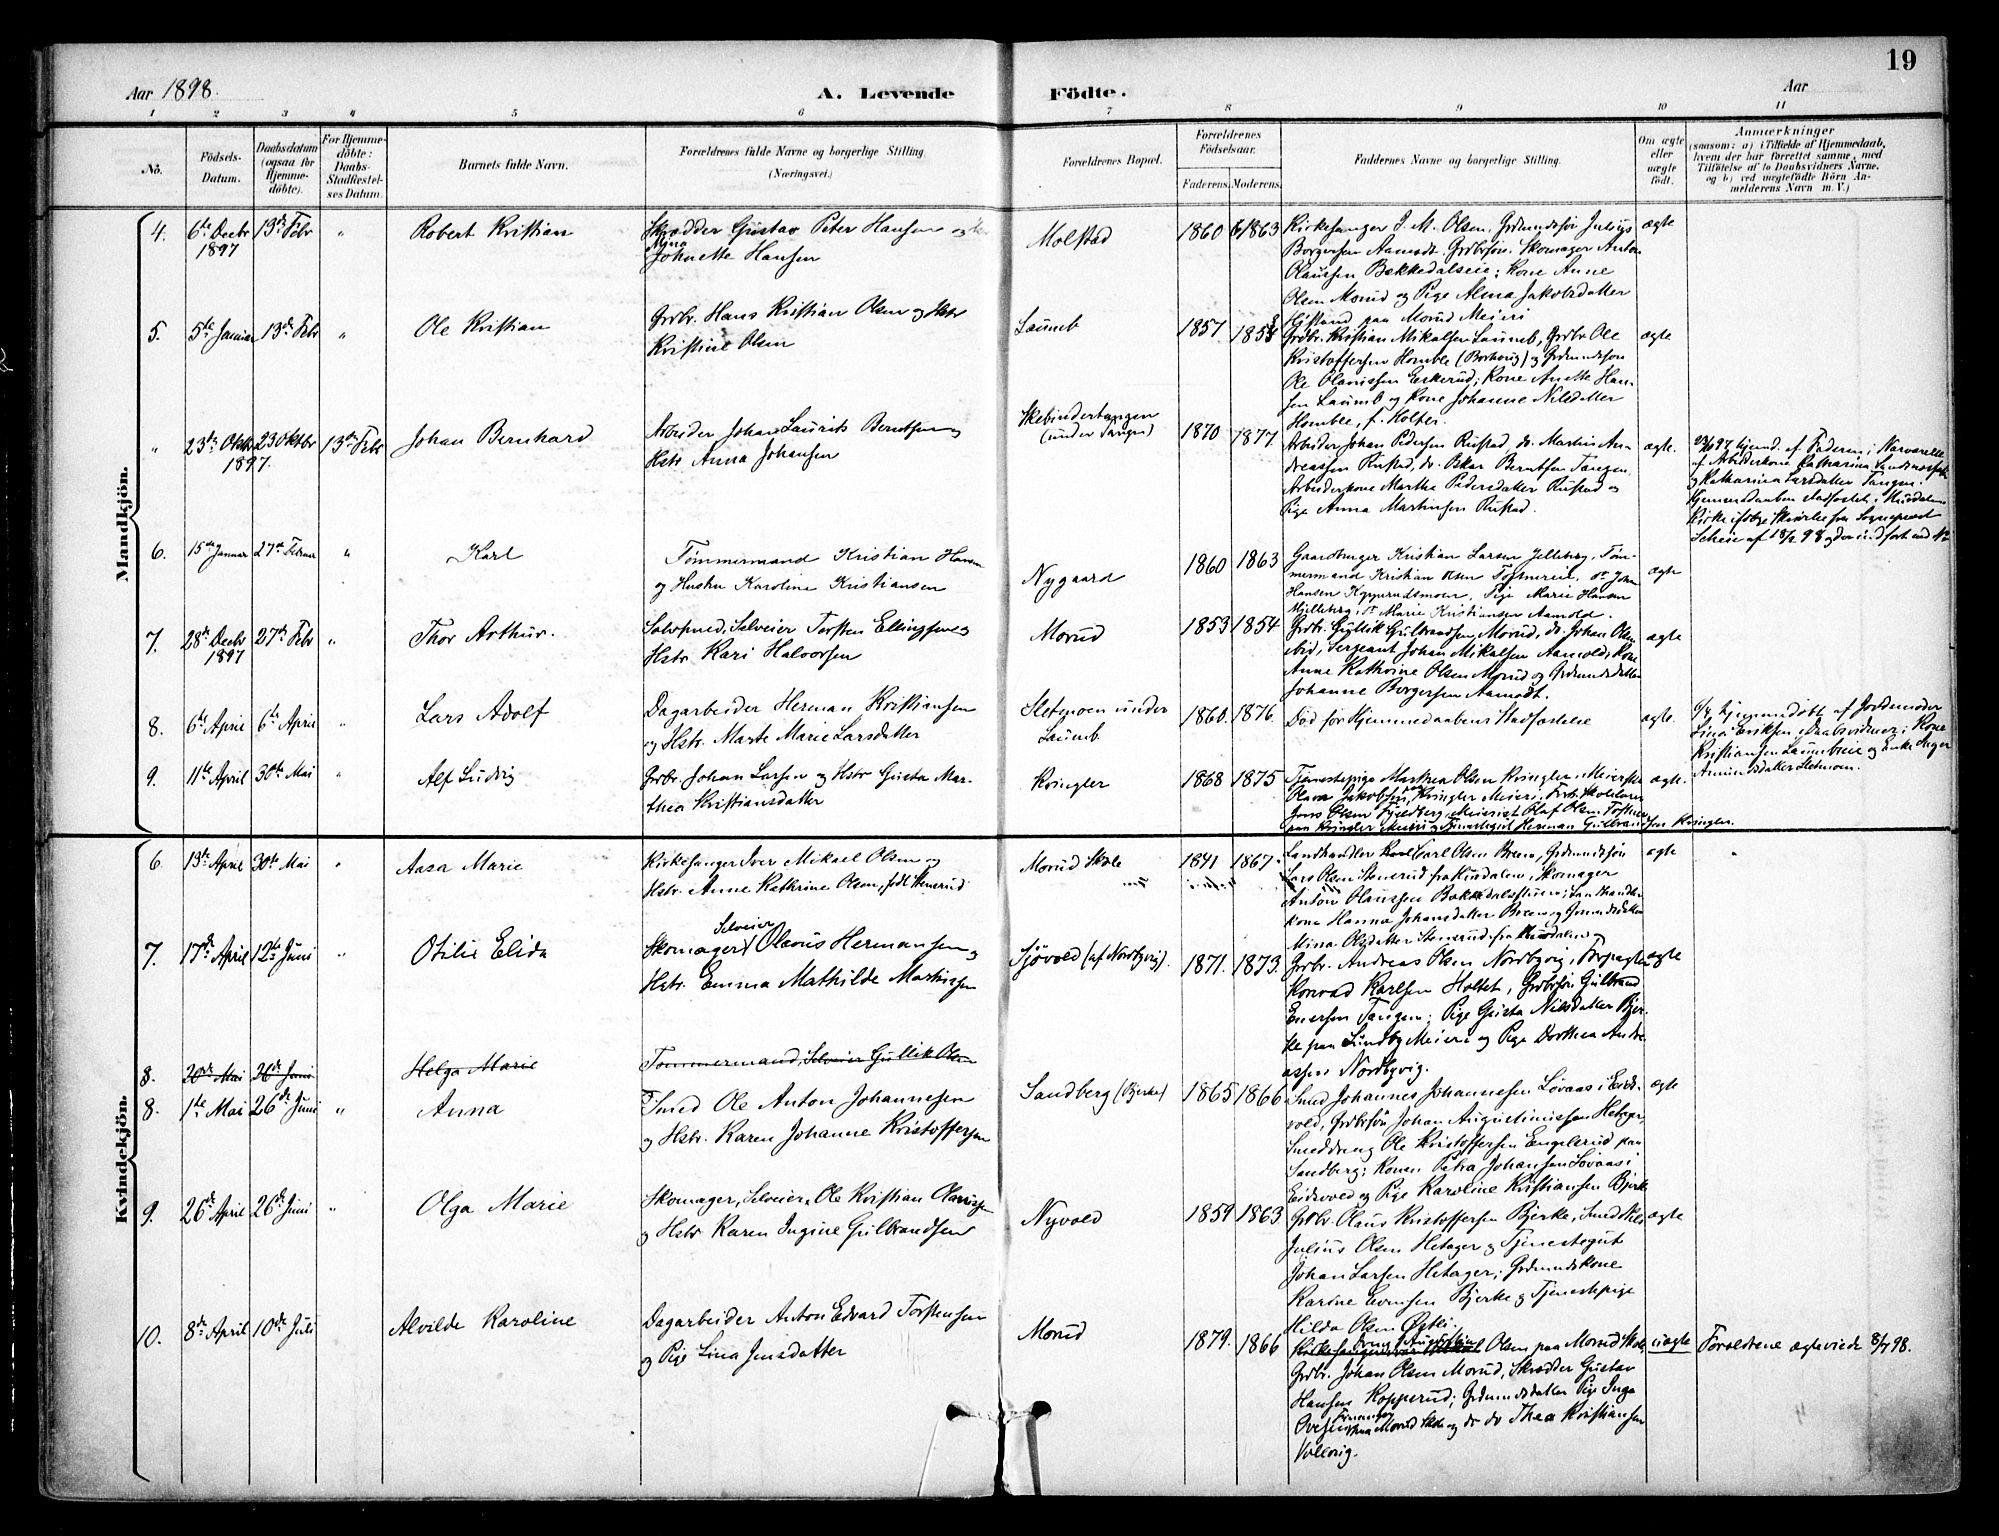 19
Aar 1898.
A. Levende Födte.
Aar
1 2 3 4 5 6 7 8 9 10 11
No.
Födsels-Datum.
Daabsdatum (ogsaa for Hjemmedöbte).
For Hjemmedöbte: Daabs-Stadfæstelses Datum.
Barnets fulde Navn.
Forældrenes fulde Navne og borgerlige Stilling. (Næringsvei.)
Forældrenes Bopæl.
Forældrenes Födselsaar.
Faderens. Moderens.
Faddernes Navne og borgerlige Stilling.
Om ægte eller uægte födt.
Anmærkninger
(saasom: a) i Tilfælde af Hjemmedaab, hvem der har forrettet samme, med Tilföielse af to Daabsvidners Navne. og b) ved uægtefödte Börn Anmelderens Navn m. V.)
Mandkjön.
4. 6te Decbr 1897 13de Febr " Robert Kristian
Skrædder Gustav Peter Hansen og
Mina
Johnette Hansen
Molstad 1860 1863
Kirkesanger I. M. Olsen, Grdmandssøn Julius
Borgersen Aamodt, Grdbrsøn, Skomager Anton
Olaussen Bakkedalseie; Kone Anne
Olsen Morud og Pige Alma Jakobsdatter
paa Morud Meieri
ægte
5. 5te Januar 13de Febr " Ole Kristian
Grdbr. Hans Kristian Olsen og Hstr
Kristine Olsen
Laumb 1857 1858
Grdbr. Kristian Mikalsen Laumb, Grdbr. Ole
Kristoffersen Homble (Borhaug) og Grdmandssøn
Ole Olavissen Eskerud; Kone Anette Han-
sen Laumb og Kone Johanne Nilsdatter
Homble, f. Holter.
ægte
" 23de Oktbr 1897. 23 Oktbr 13de Febr Johan Bernhard
Arbeider Johan Laurits Berntsen og
Hstr Anna Johansen
Skebindertangen (under Tangen) 1870 1877.
Arbeider Johan Pedersen Rustad, do. Martin An-
dreassen Rustad, do. Oskar Berntsen Tangen,
Arbeiderkone Martha Pedersdatter Rustad og
Pige Anna Martinsen Rustad.
ægte.
af Arbeiderkone Katharina
og Katharina Larsdatter Tangen.
Hjemmedaaben stadfæstet i Hurdalens
Kirke ifølge Skrivelse fra Sognepræst
6. 15de Januar 27de Februar " Karl
Tømmermand Kristian Hansen
og Hustru Karoline Kristiansen
Nygaard 1860 1863
Gaardbruger Kristian Larsen Jelleberg, Tøm-
mermand Kristian Olsen
Hansen Kopperudsmoen, Pige Marie Hansen
Marie Kristiansen Aamold.
ægte
7. 28de Decbr 1897 27de Febr " Thor Arthur.
Selveier Torsten Ellingsen og
Hstr. Kari Halvorsen
Morud 1853 1854
Grdbr. Gullik Gulbrandsen Morud, do. Johan Olsen
ibid, Sergeant Johan Mikalsen Aamold; Kone
Anne Kathrine Olsen Morud og Grdmandsdatter
Johanne Borgersen Aamodt.
ægte
8. 6te April 6te April " Lars Adolf
Dagarbeider Herman Kristiansen
og Hstr. Marte Marie Larsdatter
Sletmoen under Laumb 1860. 1876.
Død før Hjemmedaabens Stadfæstelse
ægte.
hjemmedøbt af Jordemoder
Lina Eriksen Daabsvidner: Kone
Kristiansen Laumbeie og Enke Inger
Sletmoen.
9. 11te April 30te Mai " Alf Ludvig
Grdbr. Johan Larsen og Hstr Gusta Mar-
thea Kristiansdatter
Kvingler 1868 1875
Tjenestepige Marthea Olsen Kvingler, Meierske
Jakobsen paa Kvingler Meieri, Skolelærer
Jons Olsen Fjeldberg, Meierist Olaf Olsen
paa Kvingler Meieri og Tjenestegut Herman Gulbrandsen Kvingler.
ægte.
Kvindekjön.
6. 13de April 30te Mai " Aasa Marie
Kirkesanger Iver Mikael Olsen og
Hstr. Anne Kathrine Olsen, født Stenerud
Morud Skole 1841 1867.
Landhandler Carl Olsen Breen, Grdmandssøn
Lars Olsen Stenerud fra Hurdalen, Skomager
Anton Olaussen Bakkedalsstuen; Landhandler-
kone Hanna Johansdatter Breen og Grdmandsdatter
Mina Olsdatter Stenerud fra Hurdalen
ægte "
7. 17de April 12te Juni " Otilie Elida
Selveier
Skomager Olavus Hermansen og
Hstr. Emma Mathilde Martinsen
Sjøvold (af Nordbyvig). 1871. 1873.
Grdbr. Andreas Olsen Nordbyvig, Forpagter
Konrad Karlsen Holtet, Grdbrsøn Gulbrand
Enersen Tangen; Pige Gusta Nilsdatter Bjer-
ke paa Sundby Meieri og Pige Dorthea Andre-
assen Nordbyvig.
ægte
8. 20de Mai 26de Juni Helga Marie
Tømmermand, Selveier Gullik Olsen
8. 1te Mai 26de Juni " Anna
Smed Ole Anton Johannesen
og Hstr. Karen Johanne Kristoffersen
Sandberg (Bjerke) 1865 1866
Smed Johannes Johannesen Løvaas i Eids-
vold, Grdbrsøn Johan Augustinussen Hetager,
Smeddreng Ole Kristoffersen Engelerud paa
Sandberg; Konen Petra Johansen Løvaas i
Eidsvold og Pige Karoline Kristiansen Bjerke
ægte
9. 26de April 26de Juni " Olga Marie
Skomager, Selveier Ole Kristian Olavissen
og Hstr Karen Ingine Gulbrandsen
Nyvold 1859 1863
Grdbr. Olaus Kristoffersen Bjerke, Smed Nils
Julius Olsen Hetager og Tjenestegut
Johan Larsen Hetager; Grdmandskone
Karine Evensen Bjerke og Tjenestepige
Hilda Olsen Østli.
ægte
10. 8de April 10de Juli Alvilde Karoline
Dagarbeider Anton Edvard Torstensen
og Pige Lina Jensdatter
Morud 1879. 1866
Olsen paa Morud Skole
Grdbr. Johan Olsen Morud, Skrædder Gustav
Hansen Kopperud; Grdmandsdatter Pige Inga
Ovesen paa Morud Skole og do do Thea Kristiansen
Vollovig.
uægte
Forældrene ægteviede 8/7 98.